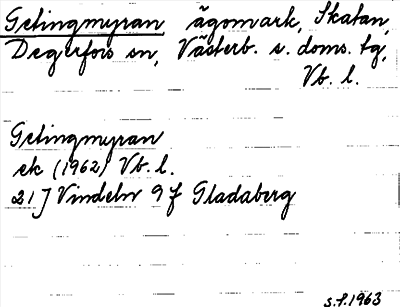 Getingmyran ägomark, Skatan,
Degerfors sn, Västerb. s. doms. tg,
Vb. l.
Getingmyran
ek (1962) Vb. l.
21 J Vindeln 9 f Gladaberg
s.f. 1963